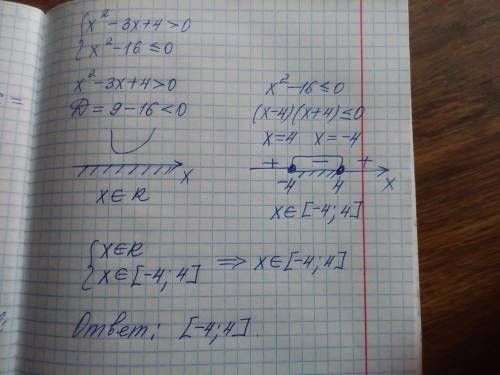 {x² - 3x + 4 > 0
{x² - 16 ≤ 0
x² - 3x + 4 > 0
D = 9 - 16 < 0
x
x ∈ R
x² - 16 ≤ 0
(x-4)(x+4) ≤ 0
x = 4 x = -4
+ - +
-4 4 x
x ∈ [-4; 4]
{x ∈ R
{x ∈ [-4; 4] ⇒ x ∈ [-4; 4]
Ответ: [-4; 4].